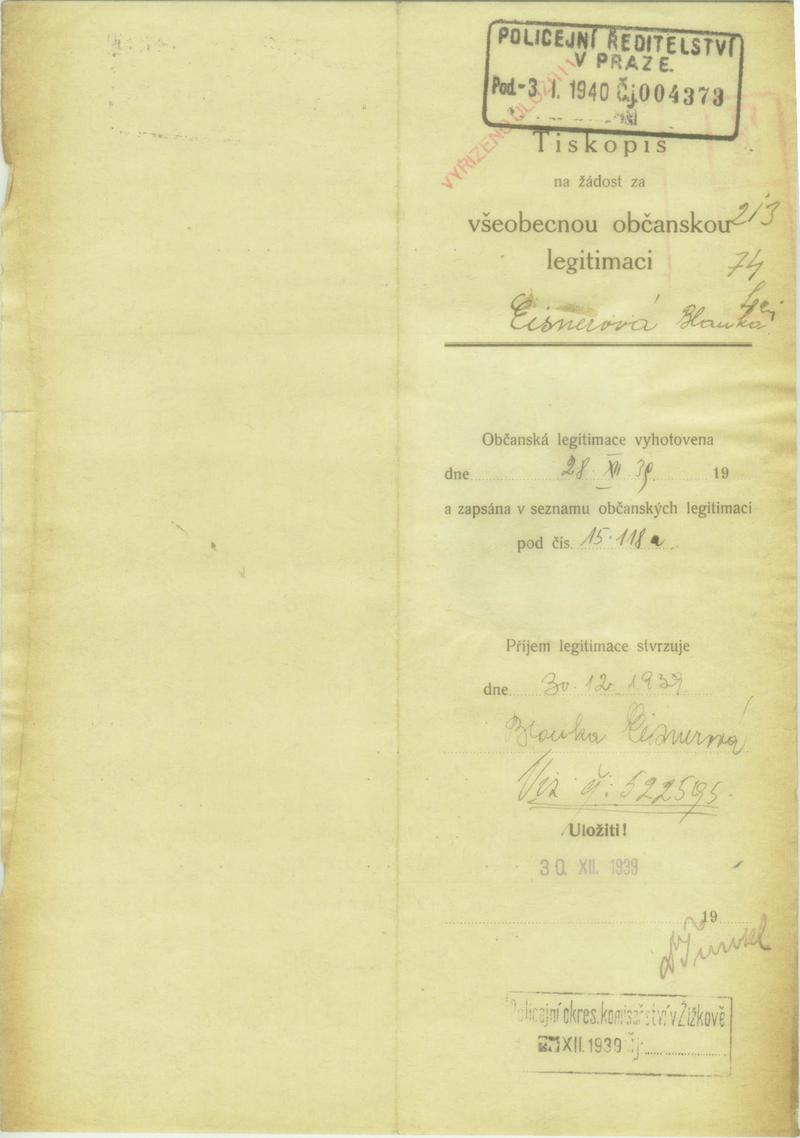 POLICEJNÍ ŘEDITELSTVÍ
V PRAZE.
Pod. -3. I. 1940 Čj. 004373
VYŘÍZENO
Tiskopis
na žádost za
všeobecnou občanskou
213
legitimaci
74
Eisnerová Blanka
Občanská legitimace vyhotovena
dne 28. XII 39 19
a zapsána v seznamu občanských legitimací
pod čís. 15.118a
Příjem legitimace stvrzuje
dne 30. 12. 1939
Blanka Eisnerová
Viz č: 522595.
Uložiti!
30. XII. 1939
19
Policejní okres. komisařství v Žižkově
XII. 1939 Čj.